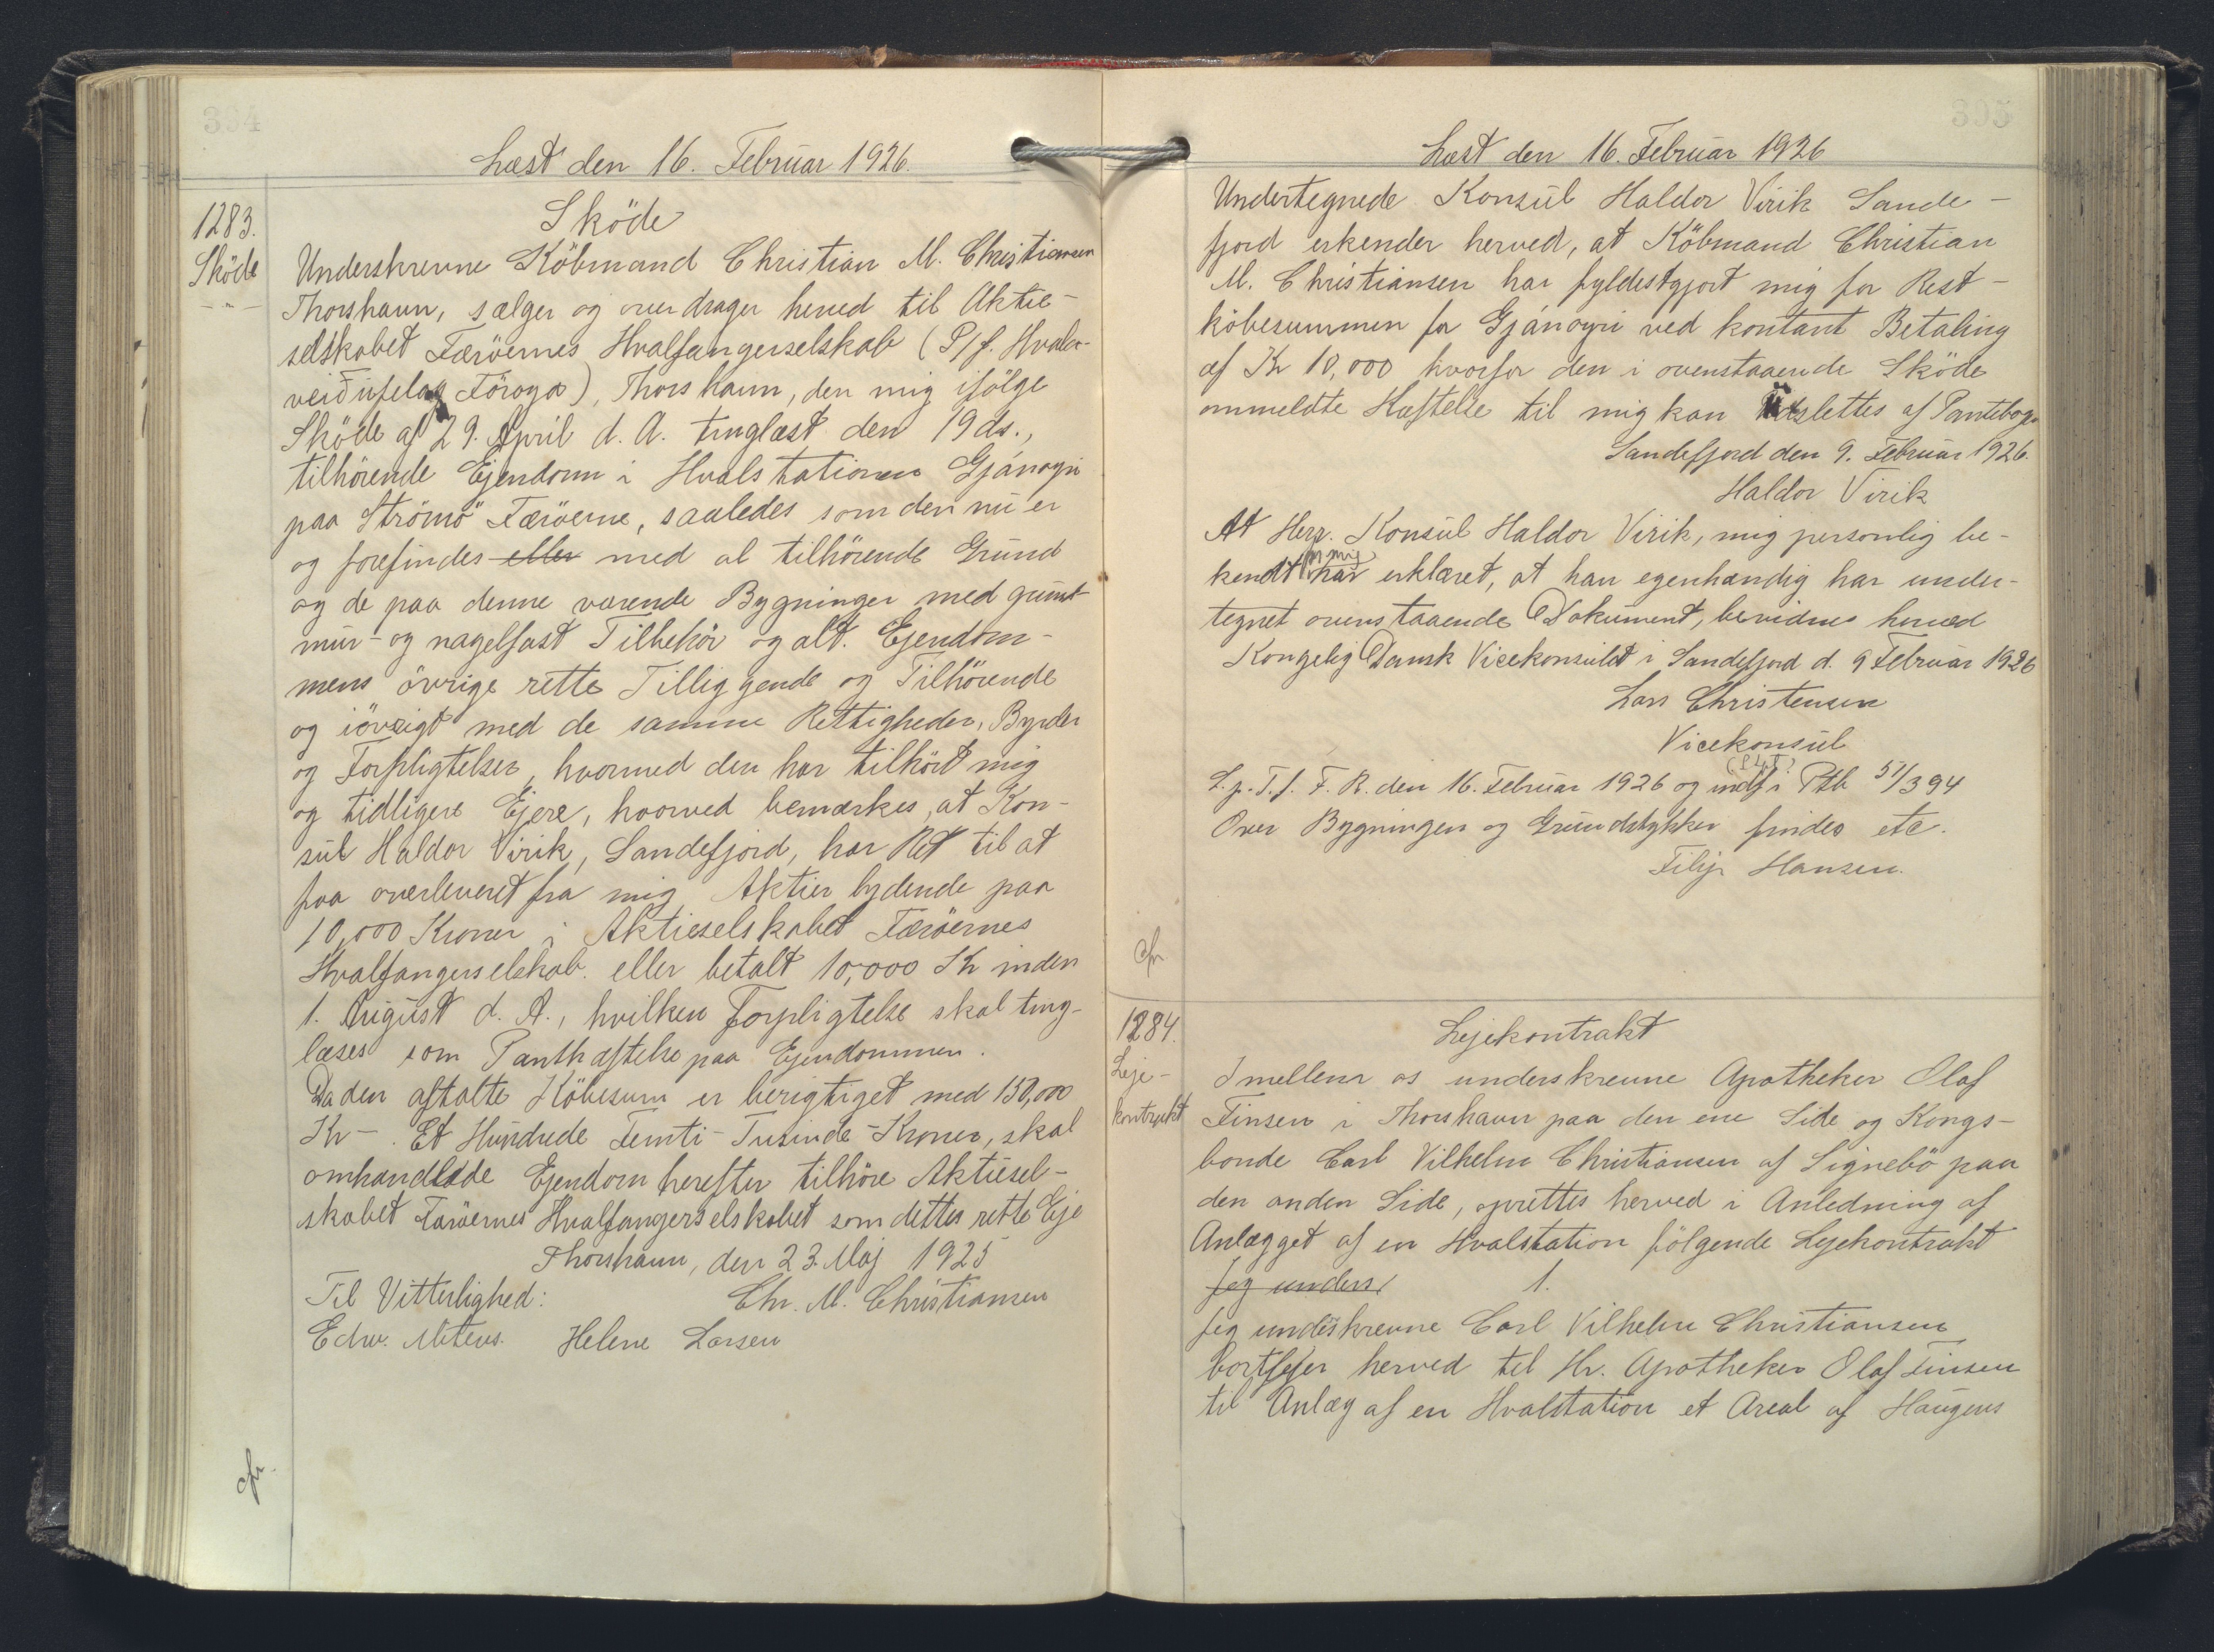 394
Læst den 16. Februar 1926.
1283.
Sköde
- " -
Sköde
Underskrevne Köbmand Christian M. Christiansen
Thorshavn, sælger og overdrager herved til Aktie-
selskabet Færöernes Hvalfangerselskab (P/f. Hvala-
veiðufelag Föroya), Thorshavn, den mig ifölge
Sköde af 29. April d. A. tinglæst den 19 ds.,
tilhörende Ejendom i Hvalstationen Gjánoyri
paa Strömö Færöerne, saaledes som den nu er
og forefindes eller med al tilhörende Grund
og de paa denne værende Bygninger med grund-
mur- og nagelfast Tilbehör og alt. Ejendom-
mens övrige rette Tilliggende og Tilhörende
og iövrigt med de samme Rettigheder, Byrder
og Forpligtelser, hvormed den har tilhört mig
og tidligere Ejere, hvorved bemærkes, at Kon-
sul Haldor Virik, Sandefjord, har Ret til at
faa overleveret fra mig Aktier lydende paa
10,000 Kroner i Aktieselskabet Færöernes
Hvalfangerselskab. eller betalt 10,000 Kr inden
1. August d. A., hvilken Forpligtelse skal ting-
læses som Panthæftelse paa Ejendommen.
Da den aftalte Köbesum er berigtiget med 150,000
Kr - . Et Hundrede Femti-Tusinde-Kroner, skal
omhandlede Ejendom herefter tilhöre Aktiesel-
skabet Færöernes Hvalfangerselskabet som dettes rette Eje
Thorshavn, den 23. Maj 1925
Til Vitterlighed: Chr. M. Christiansen
Edw. Mitens. Helene Larsen
cfr.
395
Læst den 16. Februar 1926
Undertegnede Konsul Haldor Virik Sande-
fjord erkender herved, at Köbmand Christian
M. Christiansen har fyldestgjort mig for Rest-
köbesummen for Gjánoyri ved kontant Betaling
af Kr 10,000 hvorfor den i ovenstaaende Sköde
ommeldte Hæftelse til mig kan udslettes af Pantebogen
Sandefjord den 9. Februar 1926.
Haldor Virik
At Herr. Konsul Haldor Virik, mig personlig be-
for mig
kendt har erklæret, at han egenhændig har under-
tegnet ovenstaaende Dokument, bevidnes herved
Kongelig Dansk Vicekonsulat i Sandefjord d. 9 Februar 1926
Lars Christensen
Vicekonsul
L. p. T. f. F. R. den 16. Februar 1926 og indf i Ptb 51/394
Over Bygningen og Grundstykker findes etc.
Filip Hansen.
cfr
1284.
Leje-
kontrakt
Lejekontrakt
Imellem os underskrevne Apotheker Olaf
Finsen i Thorshavn paa den ene Side og Kongs-
bonde Carl Vilhelm Christiansen af Signebö paa
den anden Side, oprettes herved i Anledning af
Anlægget af en Hvalstation fölgende Lejekontrakt
Jeg unders 1.
Jeg underskrevne Carl Vilhelm Christiansen
bortlejer herved til Hr. Apotheker Olaf Finsen
til Anlæg af en Hvalstation et Areal af Haugens